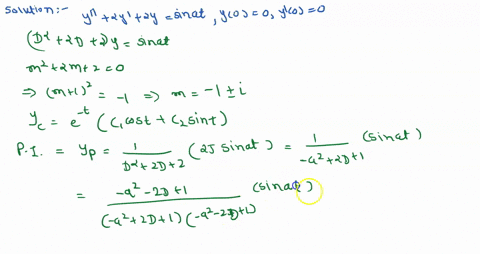 Solution:- y'' + 2y' + 2y = sinat, y(0) = 0, y'(0) = 0
(D² + 2D + 2)y = sinat
m² + 2m + 2 = 0
⇒ (m+1)² = -1 ⇒ m = -1 ± i
y_c = e^{-t} (c₁cost + c₂sint)
P.I. = y_p = 1/(D² + 2D + 2) (2J sinat) = 1/(-a² + 2D + 1) (sinat)
= (-a² - 2D + 1)/((-a² + 2D + 1)(-a² - 2D + 1)) (sinat)